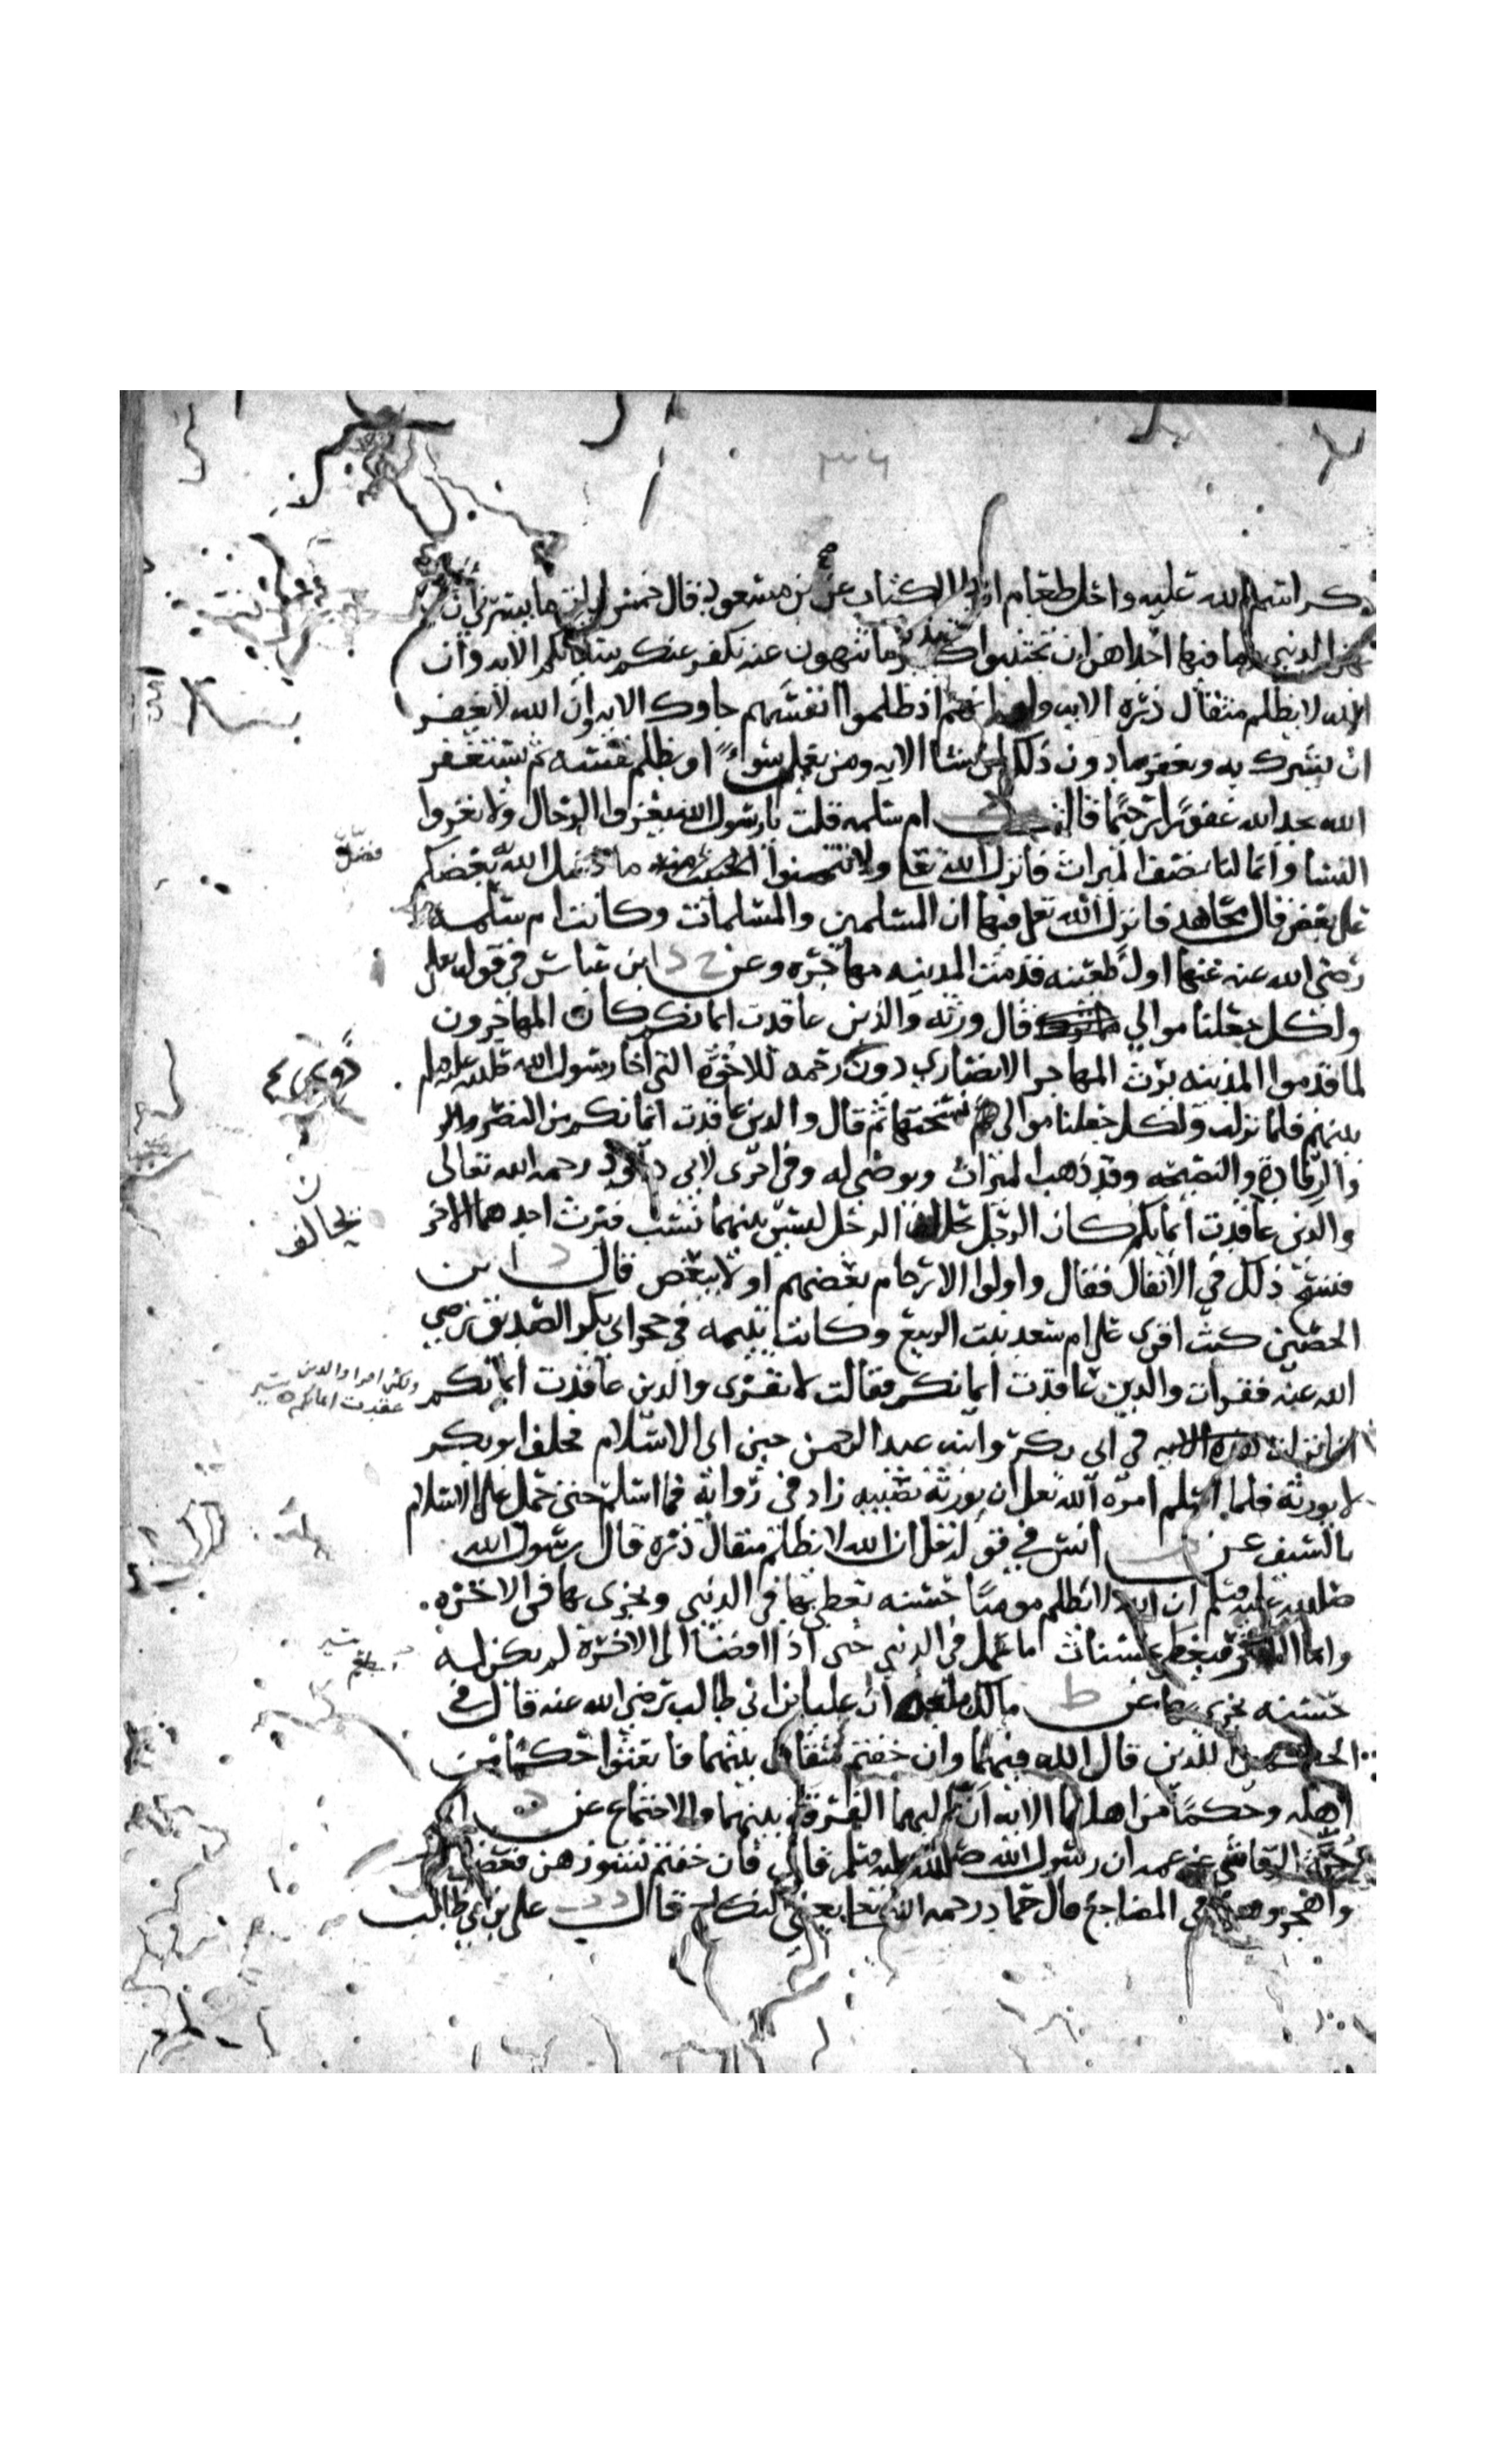 ٣٦
ذكر اسم الله عليه واحل طعام الكتاب عن بن مسعود قال خمس ايات ما يسرني ان
الدنيى وما فيها احداهن ان تجتنبوا كبير ما تنهون عنه نكفر عنكم سياتكم الايه وان
الله لا يظلم مثقال ذره الايه ولو انهم اذ ظلموا انفسهم جاوك الايه وان الله لا يغفر
ان يشرك به ويغفر ما دون ذلك لمن يشا الايه ومن يعمل سوءً او يظلم نفسه ثم يستغفر
الله يجد الله غفورًا رحيمًا قالت ام سلمه قلت يا رسول الله يغزوا الرجال ولا يغزوا
النسا وانما لنا نصف الميراث فانزل الله تعا ولا تتمنوا ما فضل الله بعضكم
على بعض قال مجاهد فانزل الله تعلى فيها ان المسلمين والمسلمات وكانت ام سلمه
رضي الله عنه عنها اول ظعينه قدمت المدينه مهاجره وعن خ د ابن عباس في قوله تعلى
ولكل جعلنا موالي قال ورثه والذين عاقدت ايمانكم كان المهاجرون
لما قدموا المدينه يرث المهاجر الانصاري دون رحمه للاخوه التي اخا رسول الله صلى الله عليه وسلم
بينهم فلما نزلت ولكل جعلنا موالي نسختها ثم قال والذين عاقدت ايمانكم من النصر
والرفادة والنصيحه وقد ذهب الميراث ويوصي له وفي اخرى لابي داوود رحمه الله تعالى
والذين عاقدت ايمانكم كان الرجل يحالف الرجل ليس بينهما نسب فيرث احدهما الاخر
فنسخ ذلك في الانفال فقال واولوا الارحام بعضهم اولا ببعض قال د ابن
الحصين كنت اقرى على ام سعد بنت الربيع وكانت يتيمه في حجر ابي بكر الصديق رضي
الله عنه فقرات والذين عاقدت ايمانكم فقالت لا تقرى والذين عاقدت ايمانكم
انما نزلت هذه الايه في ابي بكر وابنه عبد الرحمن حين ابى الاسلام فحلف ابو بكر
لا يورثه فلما اسلم امره الله تعلى ان يورثه نصيبه زاد في روايه فما اسلم حتى حمل على الاسلام
بالسيف عن انس في قوله تعلى ان الله لا يظلم مثقال ذره قال رسول الله
صلى الله عليه وسلم ان الله لا يظلم مومنًا حسنه يعطى بها في الدنيى ويجزى بها في الاخره
واما الكافر فيعطى حسنات ما عمل في الدنيى حتى اذا افضا الى الاخرة لم يكن له
حسنه يجزى بها عن ط مالك بلغه ان علي بن ابي طالب رضي الله عنه قال في
الحكمين اللذين قال الله فيهما وان خفتم شقاق بينهما فابعثوا حكمًا من
اهله وحكمًا من اهلها الايه ان اليهما الفرقة بينهما والاجتماع عن د ابي
حرة الرقاشي عن عمه ان رسول الله صلى الله عليه وسلم قال فان خفتم نشوزهن فعظوهن
واهجروهن في المضاجع قال حماد رحمه الله تعا يعني النكاح قال د علي بن ابي طالب
فضل
يحالف
ولكن اقرا والذين
عقدت ايمانكم